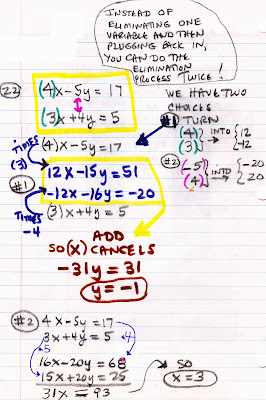 INSTEAD OF
ELIMINATING ONE
VARIABLE AND THEN
PLUGGING BACK IN,
YOU CAN DO THE
ELIMINATION
PROCESS TWICE!
22)
(4)x-5y = 17
(3)x+4y = 5
WE HAVE TWO
CHOICES
#1 TURN
(4) (3) } INTO { 12 -12
#2 (-5) (4) } INTO { -20 20
TIMES (3)
(4)x-5y=17
#1
12x-15y=51
-12x-16y=-20
TIMES -4
(3)x+4y=5
ADD
SO (X) CANCELS
-31y=31
y=-1
#2 4x-5y=17
3x+4y=5
·4
·5
16x-20y=68
15x+20y=25
31x=93
SO
x=3